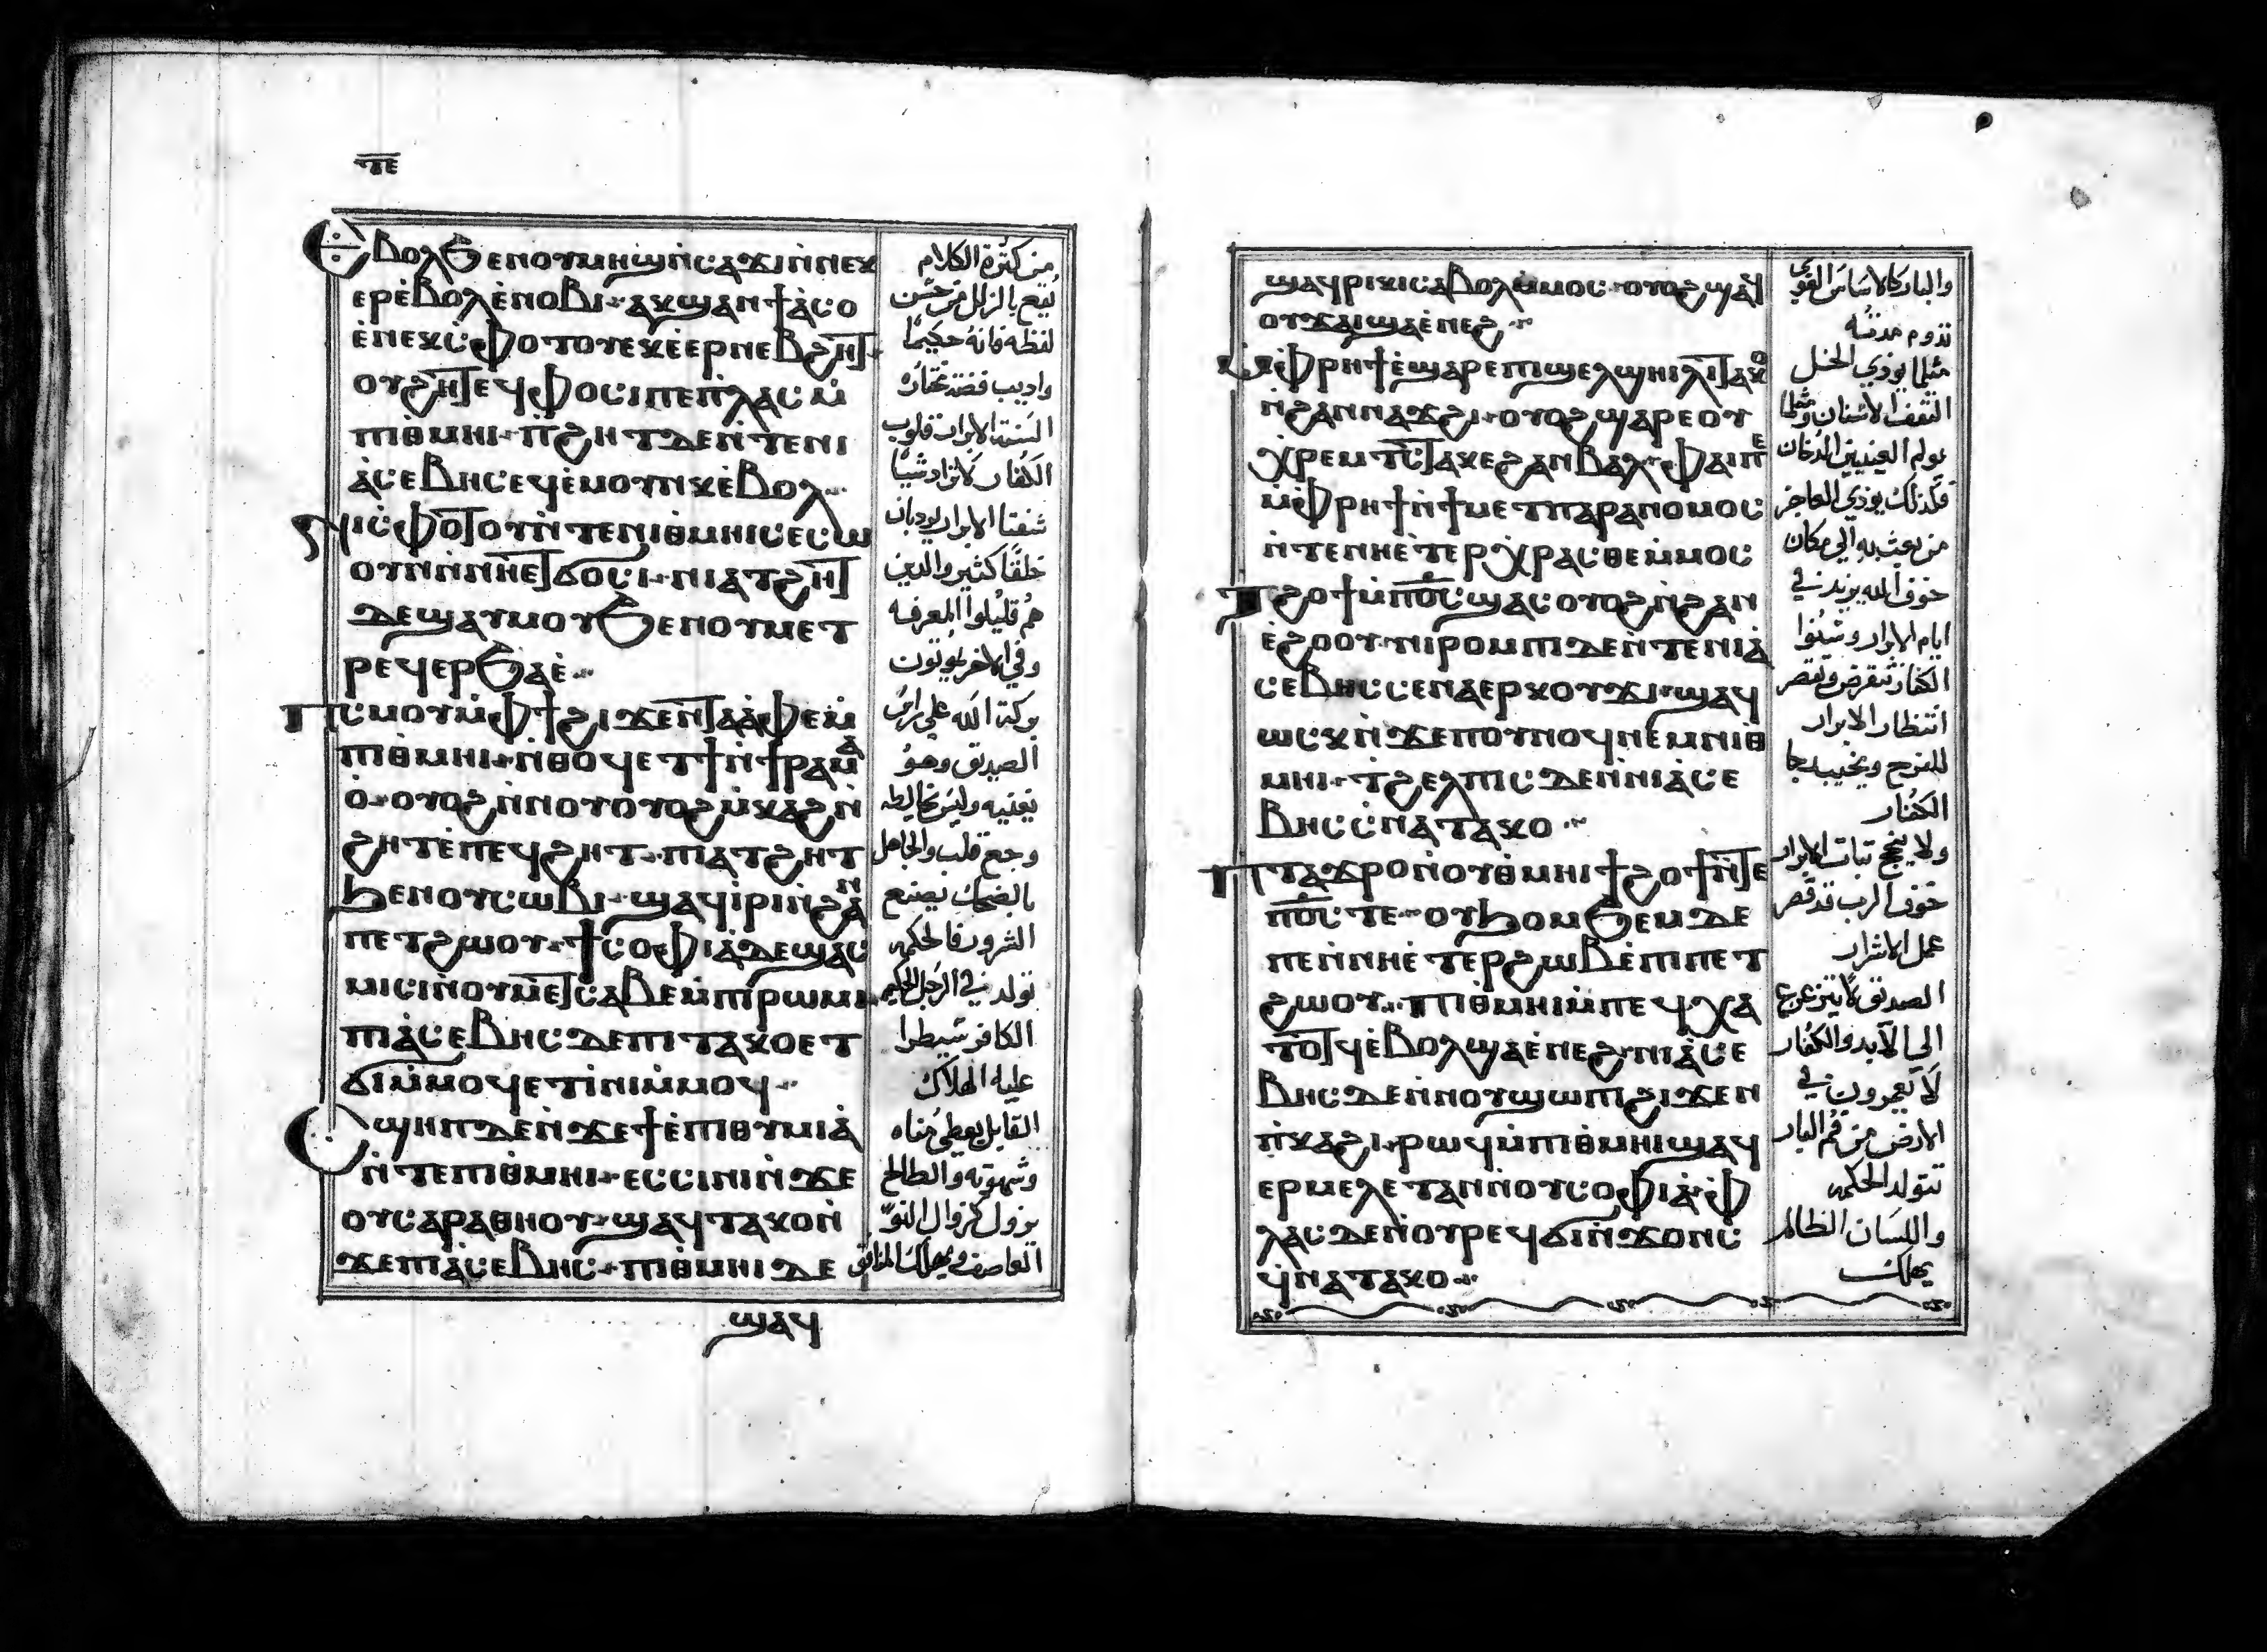 ⲧⲉ
Ⲉⲃⲟⲗϧⲉⲛⲟⲩⲙⲏϣⲛ̀ⲥⲁϫⲓⲛ̀ⲛⲉⲕ
ⲉⲣⲉ̀ⲃⲟⲗⲉ̀ⲛⲟⲃⲓ·ⲁⲕϣⲁⲛϯⲁ̀ⲥⲟ
ⲉ̀ⲛⲉⲕⲥ̀ⲫⲟⲧⲟⲩⲉⲕⲉ̀ⲉⲣⲛⲉⲃϩⲏⲧ·
ⲟⲩϩⲏⲧⲉϥⲫⲟⲥⲓⲡⲉⲡ̀ⲗⲁⲥⲙ̀
ⲡⲓⲑⲙⲏⲓ·ⲡ̀ϩⲏⲧⲇⲉⲛ̀ⲧⲉⲛⲓ
ⲁ̀ⲥⲉⲃⲏⲥⲉϥⲉ̀ⲙⲟⲩⲛⲕⲉ̀ⲃⲟⲗ··
ⲛⲓⲥ̀ⲫⲟⲧⲟⲩⲛ̀ⲧⲉⲛⲓⲑⲙⲏⲓⲥⲉⲥⲱ
ⲟⲩⲛⲛ̀ⲛⲏⲉⲧϭⲟⲥⲓ·ⲛⲓⲁⲧϩⲏⲧ
ⲇⲉϣⲁⲩⲙⲟⲩϧⲉⲛⲟⲩⲙⲉⲧ
ⲣⲉϥⲉⲣϧⲁⲉ̀··
Ⲡⲥⲙⲟⲩⲙ̀ⲫϯϩⲓϫⲉⲛⲧⲁ̀ⲫⲉⲙ̀
ⲡⲓⲑⲙⲏⲓ·ⲛ̀ⲑⲟϥⲉⲧϯⲛ̀ϯⲣⲁⲙⲁ̀
ⲟ̀·ⲟⲩⲟϩⲛ̀ⲛⲟⲩⲟⲩⲟϩⲙ̀ⲕⲁϩⲛ̀
ϩⲏⲧⲉ̀ⲡⲉϥϩⲏⲧ·ⲡⲓⲁⲧϩⲏⲧ
ϧⲉⲛⲟⲩⲥⲱⲃⲓ·ϣⲁϥⲓ̀ⲣⲓⲛ̀ϩⲁⲛ
ⲡⲉⲧϩⲱⲟⲩ·ϯⲥⲟⲫⲓⲁ̀ⲇⲉϣⲁⲥ
ⲙⲓⲥⲓⲛ̀ⲟⲩⲙⲉⲧⲥⲁⲃⲉⲙ̀ⲡⲓⲣⲱⲙⲓ·
ⲡⲓⲁ̀ⲥⲉⲃⲏⲥⲇⲉⲡⲓⲧⲁⲕⲟⲉⲧ
ϭⲓⲙ̀ⲙⲟϥⲉⲧⲓ̀ⲛⲓⲙ̀ⲙⲟϥ··
Ⲟϣⲏⲡⲇⲉⲛ̀ϫⲉϯⲉ̀ⲡⲓⲑⲩⲙⲓⲁ̀
ⲛ̀ⲧⲉⲡⲓⲑⲙⲏⲓ·ⲉⲥⲥⲓⲛⲓⲛ̀ϫⲉ
ⲟⲩⲥⲁⲣⲁⲑⲏⲟⲩ·ϣⲁϥⲧⲁⲕⲟⲛ̀
ϫⲉⲡⲓⲁ̀ⲥⲉⲃⲏⲥ·ⲡⲓⲑⲙⲏⲓⲇⲉ
ϣⲁϥ
من كثرة الكلام
تبع بالزلل من حسّن
لفظه فانه حكيمًا
واديب فضة مختاره
السنة الابرار قلوب
الكفار لاتزاد شيئًا
شفتا الابرار يوديان
خلقًا كثير والدين
هم قليلوا المعرفه
وفي الاخر يموتون
بركة الله علي راس
الصديق وهو
تغنيه وليس تخالطه
وجع قلب والجاهل
بالضحك يصنع
الشرور فالحكمه
تولد في الرجل الحكيم
الكافر شيطرا
عليه الهلاك
القابل يعطي مناه
وشهوته والطالح
يزول كزوال النوّ
العاصف ويهلك المنافق
ϣⲁϥⲣⲓⲕⲓⲥⲁⲃⲟⲗⲙ̀ⲙⲟⲥ·ⲟⲩⲟϩϣⲁϥ
ⲟⲩϫⲁⲓϣⲁⲉ̀ⲛⲉϩ··
Ⲙ̀ⲫⲣⲏϯⲉ̀ϣⲁⲣⲉⲡⲓϣⲉⲗϣⲏⲓⲗⲓⲧⲁⲕⲟ
ⲛ̀ϩⲁⲛⲛⲁϫϩⲓ·ⲟⲩⲟϩϣⲁⲣⲉⲟⲩ
ⲭⲣⲉⲙⲧⲥⲧⲁⲕⲉϩⲁⲛⲃⲁⲗ·ⲫⲁⲓⲡⲉ
ⲙ̀ⲫⲣⲏϯⲛ̀ϯⲙⲉⲧⲡⲁⲣⲁⲛⲟⲙⲟⲥ
ⲛ̀ⲧⲉⲛⲏⲉ̀ⲧⲉⲣⲭⲣⲁⲥⲑⲉⲙ̀ⲙⲟⲥ
Ⲧϩⲟϯⲙ̀ⲡⲟ̅ⲥ̅ϣⲁⲥⲟⲩⲟϩⲛ̀ϩⲁⲛ
ⲉ̀ϩⲟⲟⲩ·ⲛⲓⲣⲟⲙⲡⲓⲇⲉⲛ̀ⲧⲉⲛⲓⲁ̀
ⲥⲉⲃⲏⲥⲥⲉⲛⲁⲉⲣⲕⲟⲩϫⲓ·ϣⲁϥ
ⲱⲥⲕⲛ̀ϫⲉⲡⲟⲩⲛⲟϥⲛⲉⲙⲛⲓⲑ
ⲙⲏⲓ·ⲧϩⲉⲗⲡⲓⲥⲇⲉⲛ̀ⲛⲓⲁ̀ⲥⲉ
ⲃⲏⲥⲥ̀ⲛⲁⲧⲁⲕⲟ··
ⲡⲧⲁϫⲣⲟⲛ̀ⲟⲩⲑⲙⲏⲓϯϩⲟϯⲛ̀ⲧⲉ
ⲡⲟ̅ⲥ̅ⲧⲉ·ⲟⲩϧⲟⲙϧⲉⲙⲇⲉ
ⲡⲉⲛ̀ⲛⲏⲉ̀ⲧⲉⲣϩⲱⲃⲉ̀ⲡⲓⲡⲉⲧ
ϩⲱⲟⲩ··ⲡⲓⲑⲙⲏⲓⲙ̀ⲡⲉϥⲭⲁ
ⲧⲟⲧϥⲉ̀ⲃⲟⲗϣⲁⲉ̀ⲛⲉϩ·ⲛⲓⲁ̀ⲥⲉ
ⲃⲏⲥⲇⲉⲛ̀ⲛⲟⲩϣⲱⲡⲓϩⲓϫⲉⲛ
ⲡ̀ⲕⲁϩⲓ·ⲣⲱϥⲙ̀ⲡⲓⲑⲙⲏⲓϣⲁϥ
ⲉⲣⲙⲉⲗⲉⲧⲁⲛ̀ⲛⲟⲩⲥⲟⲫⲓⲁ̀·ⲫ
ⲗⲁⲥⲇⲉⲛ̀ⲟⲩⲣⲉϥϭⲓⲛ̀ϫⲟⲛⲥ̀
ϥ̀ⲛⲁⲧⲁⲕⲟ··
والبار كالاساس القوي
تدوم مدته
مثلما يوذي الخل
التفف الاسنان ومثلما
يولم العينين الدخان
فكذلك يوذي الفاجر
من يبعث به الي مكان
خوف الله يزيد في
ايام الابرار وسنوا
الكفار تنقرض وتقصر
انتظار الابرار
للفرح ويخيب رجا
الكفار
ولا ينجح تبات الابرار
خوف الرب قد قصر
عمل الاشرار
الصديق لا يتزعزع
الي الابد والكفار
لا يعمرون في
الارض من فم البار
تتولد الحكمه
واللسان الظالم
يهلك